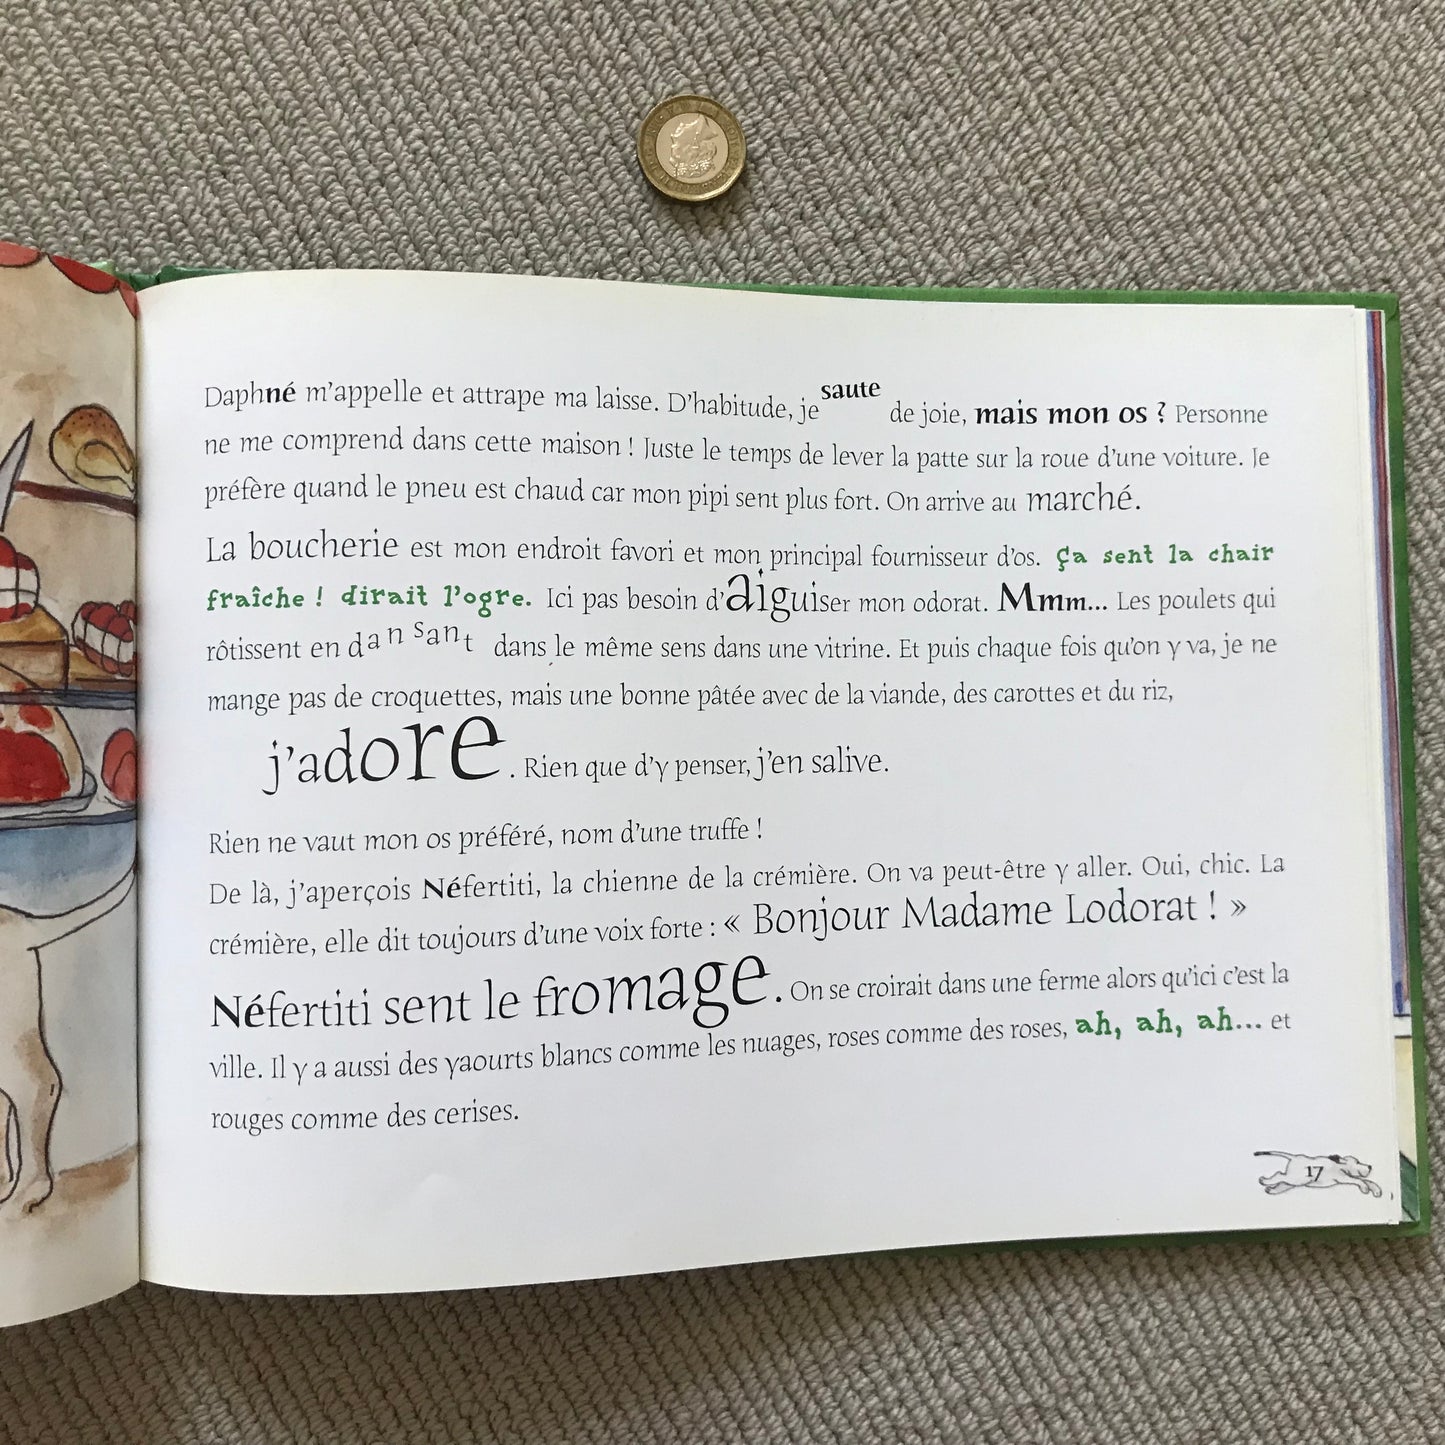 Daphné m'appelle et attrape ma laisse. D'habitude, je saute de joie, mais mon os ? Personne
ne me comprend dans cette maison ! Juste le temps de lever la patte sur la roue d'une voiture. Je
préfère quand le pneu est chaud car mon pipi sent plus fort. On arrive au marché.
La boucherie est mon endroit favori et mon principal fournisseur d'os. Ça sent la chair
fraîche ! dirait l'ogre. Ici pas besoin d'aiguiser mon odorat. Mmm... Les poulets qui
rôtissent en dansant dans le même sens dans une vitrine. Et puis chaque fois qu'on y va, je ne
mange pas de croquettes, mais une bonne pâtée avec de la viande, des carottes et du riz,
j'adore. Rien que d'y penser, j'en salive.
Rien ne vaut mon os préféré, nom d'une truffe !
De là, j'aperçois Néfertiti, la chienne de la crémière. On va peut-être y aller. Oui, chic. La
crémière, elle dit toujours d'une voix forte : « Bonjour Madame Lodorat ! »
Néfertiti sent le fromage. On se croirait dans une ferme alors qu'ici c'est la
ville. Il y a aussi des yaourts blancs comme les nuages, roses comme des roses, ah, ah, ah... et
rouges comme des cerises.
17